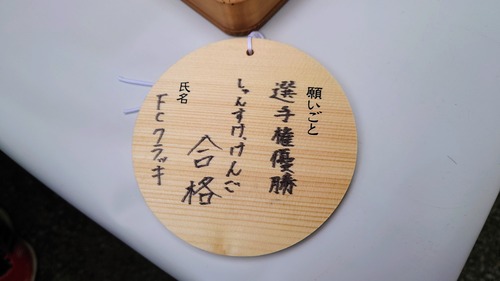 願いごと
選手権優勝
しゅんすけ、けんご
合格
氏名
FCクラッキ